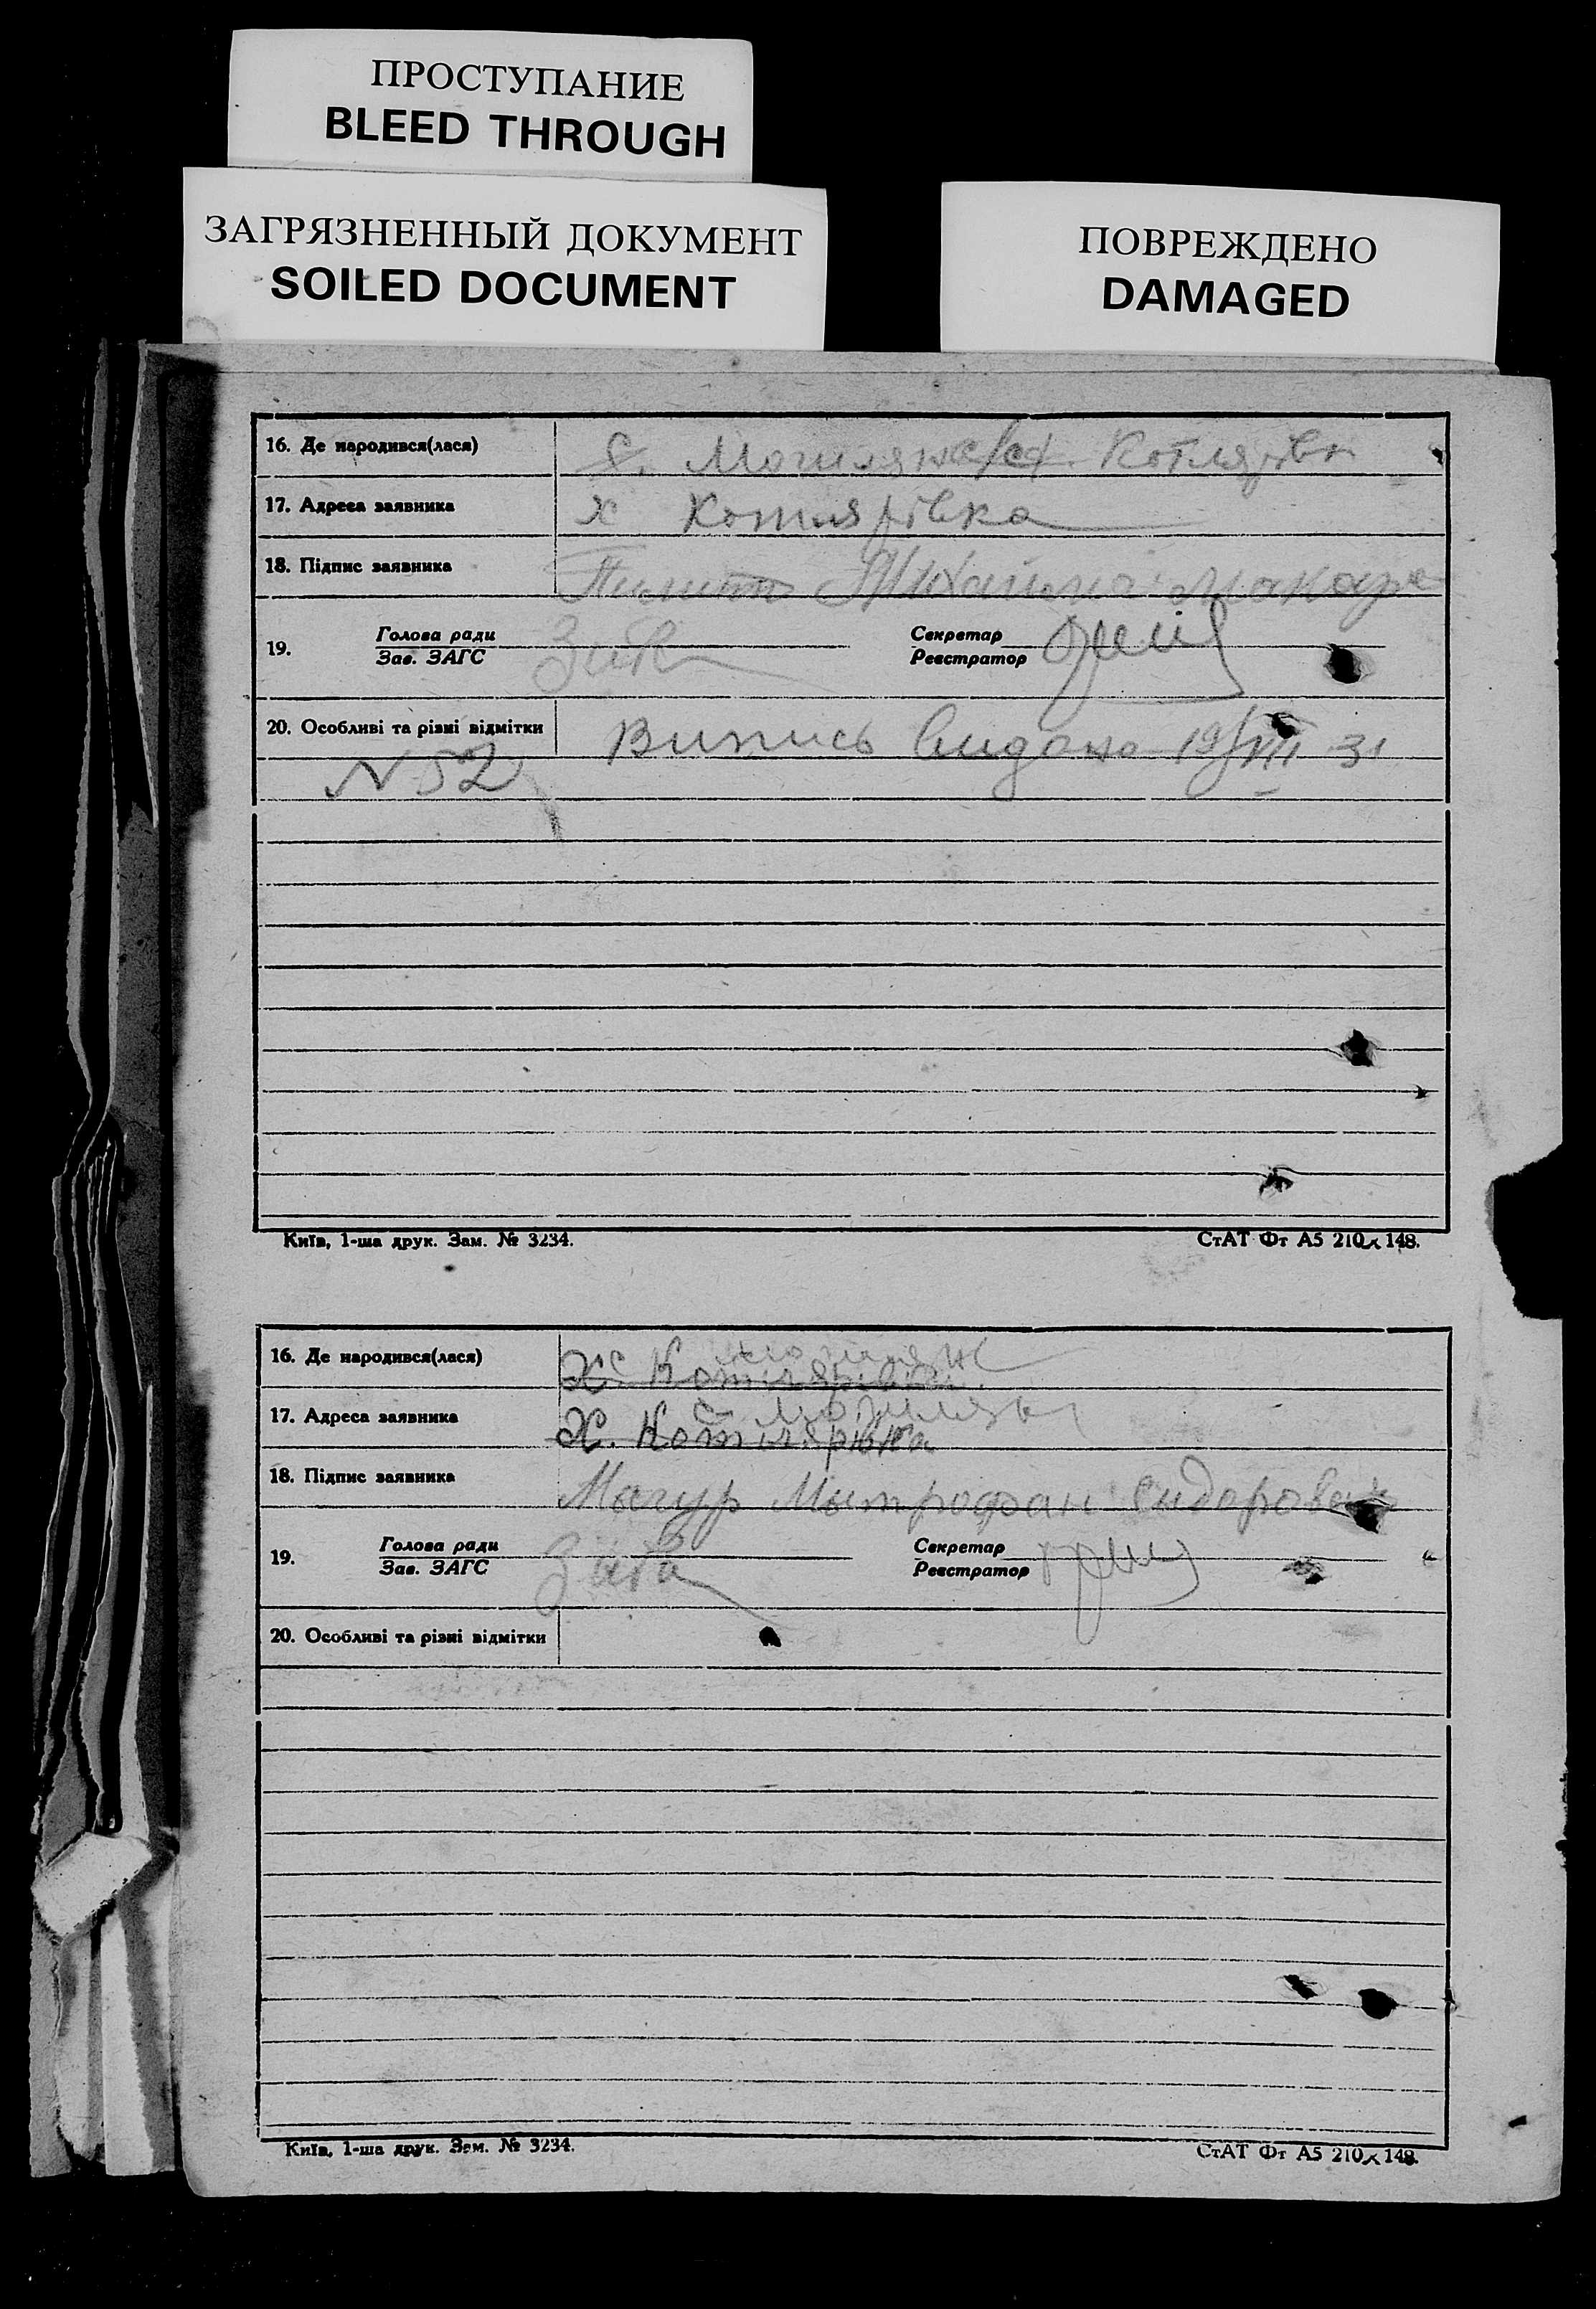 ПРОСТУПАНИЕ
BLEED THROUGH
ЗАГРЯЗНЕННЫЙ ДОКУМЕНТ
SOILED DOCUMENT
ПОВРЕЖДЕНО
DAMAGED
16. Де народився(лася)
17. Адреса заявника х Котлярівка
18. Підпис заявника
19. Голова ради
Зав. ЗАГС
Секретар
Реєстратор
20. Особливі та різні відмітки Випись видана 19/VIII 31
N 52
Київ, 1-ша друк. Зам. № 3234. СтАТ Фт А5 210×148.
16. Де народився(лася) Х. Котлярівка
17. Адреса заявника Х. Котлярівка
18. Підпис заявника Мачур Митрофан Сидорович
19. Голова ради
Зав. ЗАГС
Секретар
Реєстратор
20. Особливі та різні відмітки
Київ, 1-ша друк. Зам. № 3234. СтАТ Фт А5 210×148.